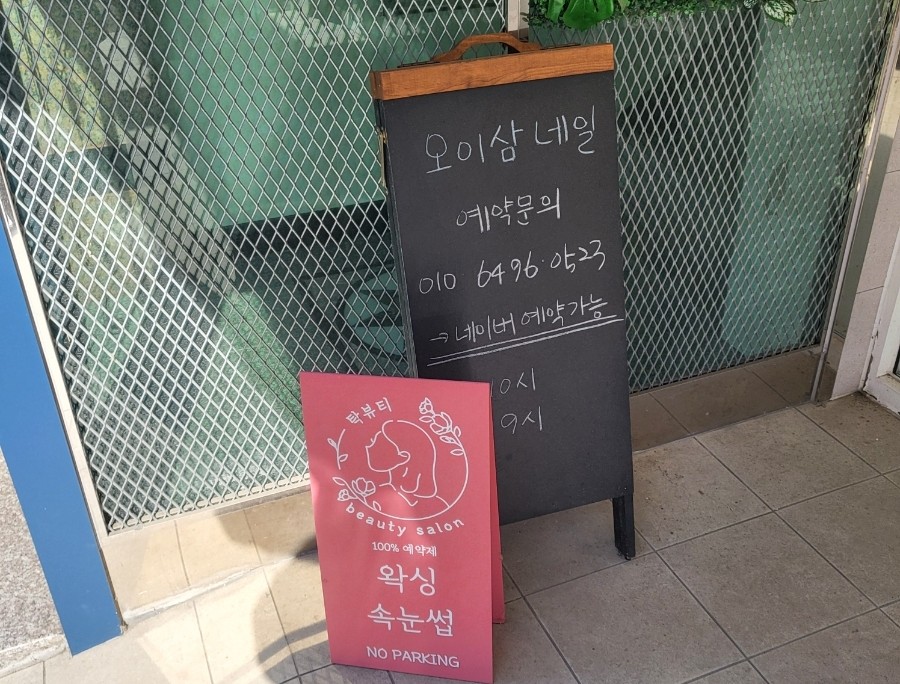 오이삼 네일
예약문의
010 6496·0523
→ 네이버 예약가능
10시
9시
탁뷰티
beauty salon
100% 예약제
왁싱
속눈썹
NO PARKING